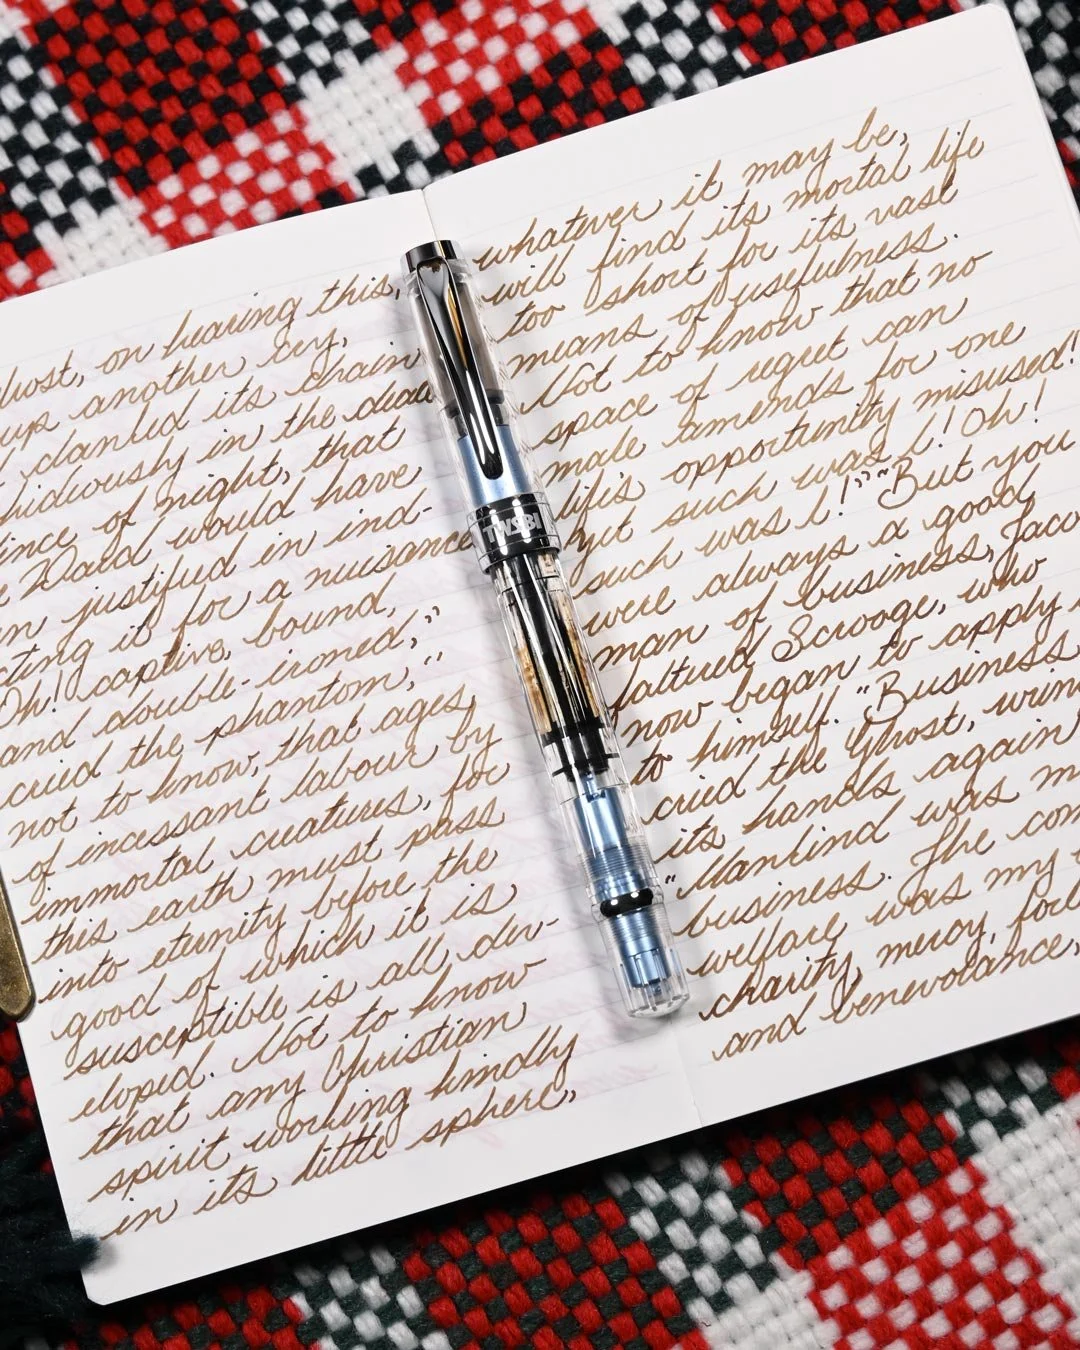 Ghost, on hearing this,
up another cry,
clanked its chain
hideously in the dead
ilence of night, that
e Ward would have
en justified in ind-
cting it for a nuisance
"Oh! captive, bound,
and double-ironed,"
cried the phantom, "
not to know, that ages,
of incessant labour by
immortal creatures, for
this earth must pass
into eternity before the
good of which it is
susceptible is all dev-
eloped. Not to know
that any Christian
spirit working kindly
in its little sphere,
whatever it may be,
will find its mortal life
too short for its vast
means of usefulness.
Not to know that no
space of regret can
make amends for one
life's opportunity misused!
Yet such was I! Oh!
such was I!" "But you
were always a good
man of business, Jaco
faltered Scrooge, who
now began to apply
to himself. "Business
cried the Ghost, wrin
its hands again
"Mankind was m
business. The com
welfare was my
charity, mercy, for
and benevolance,
TWSBI